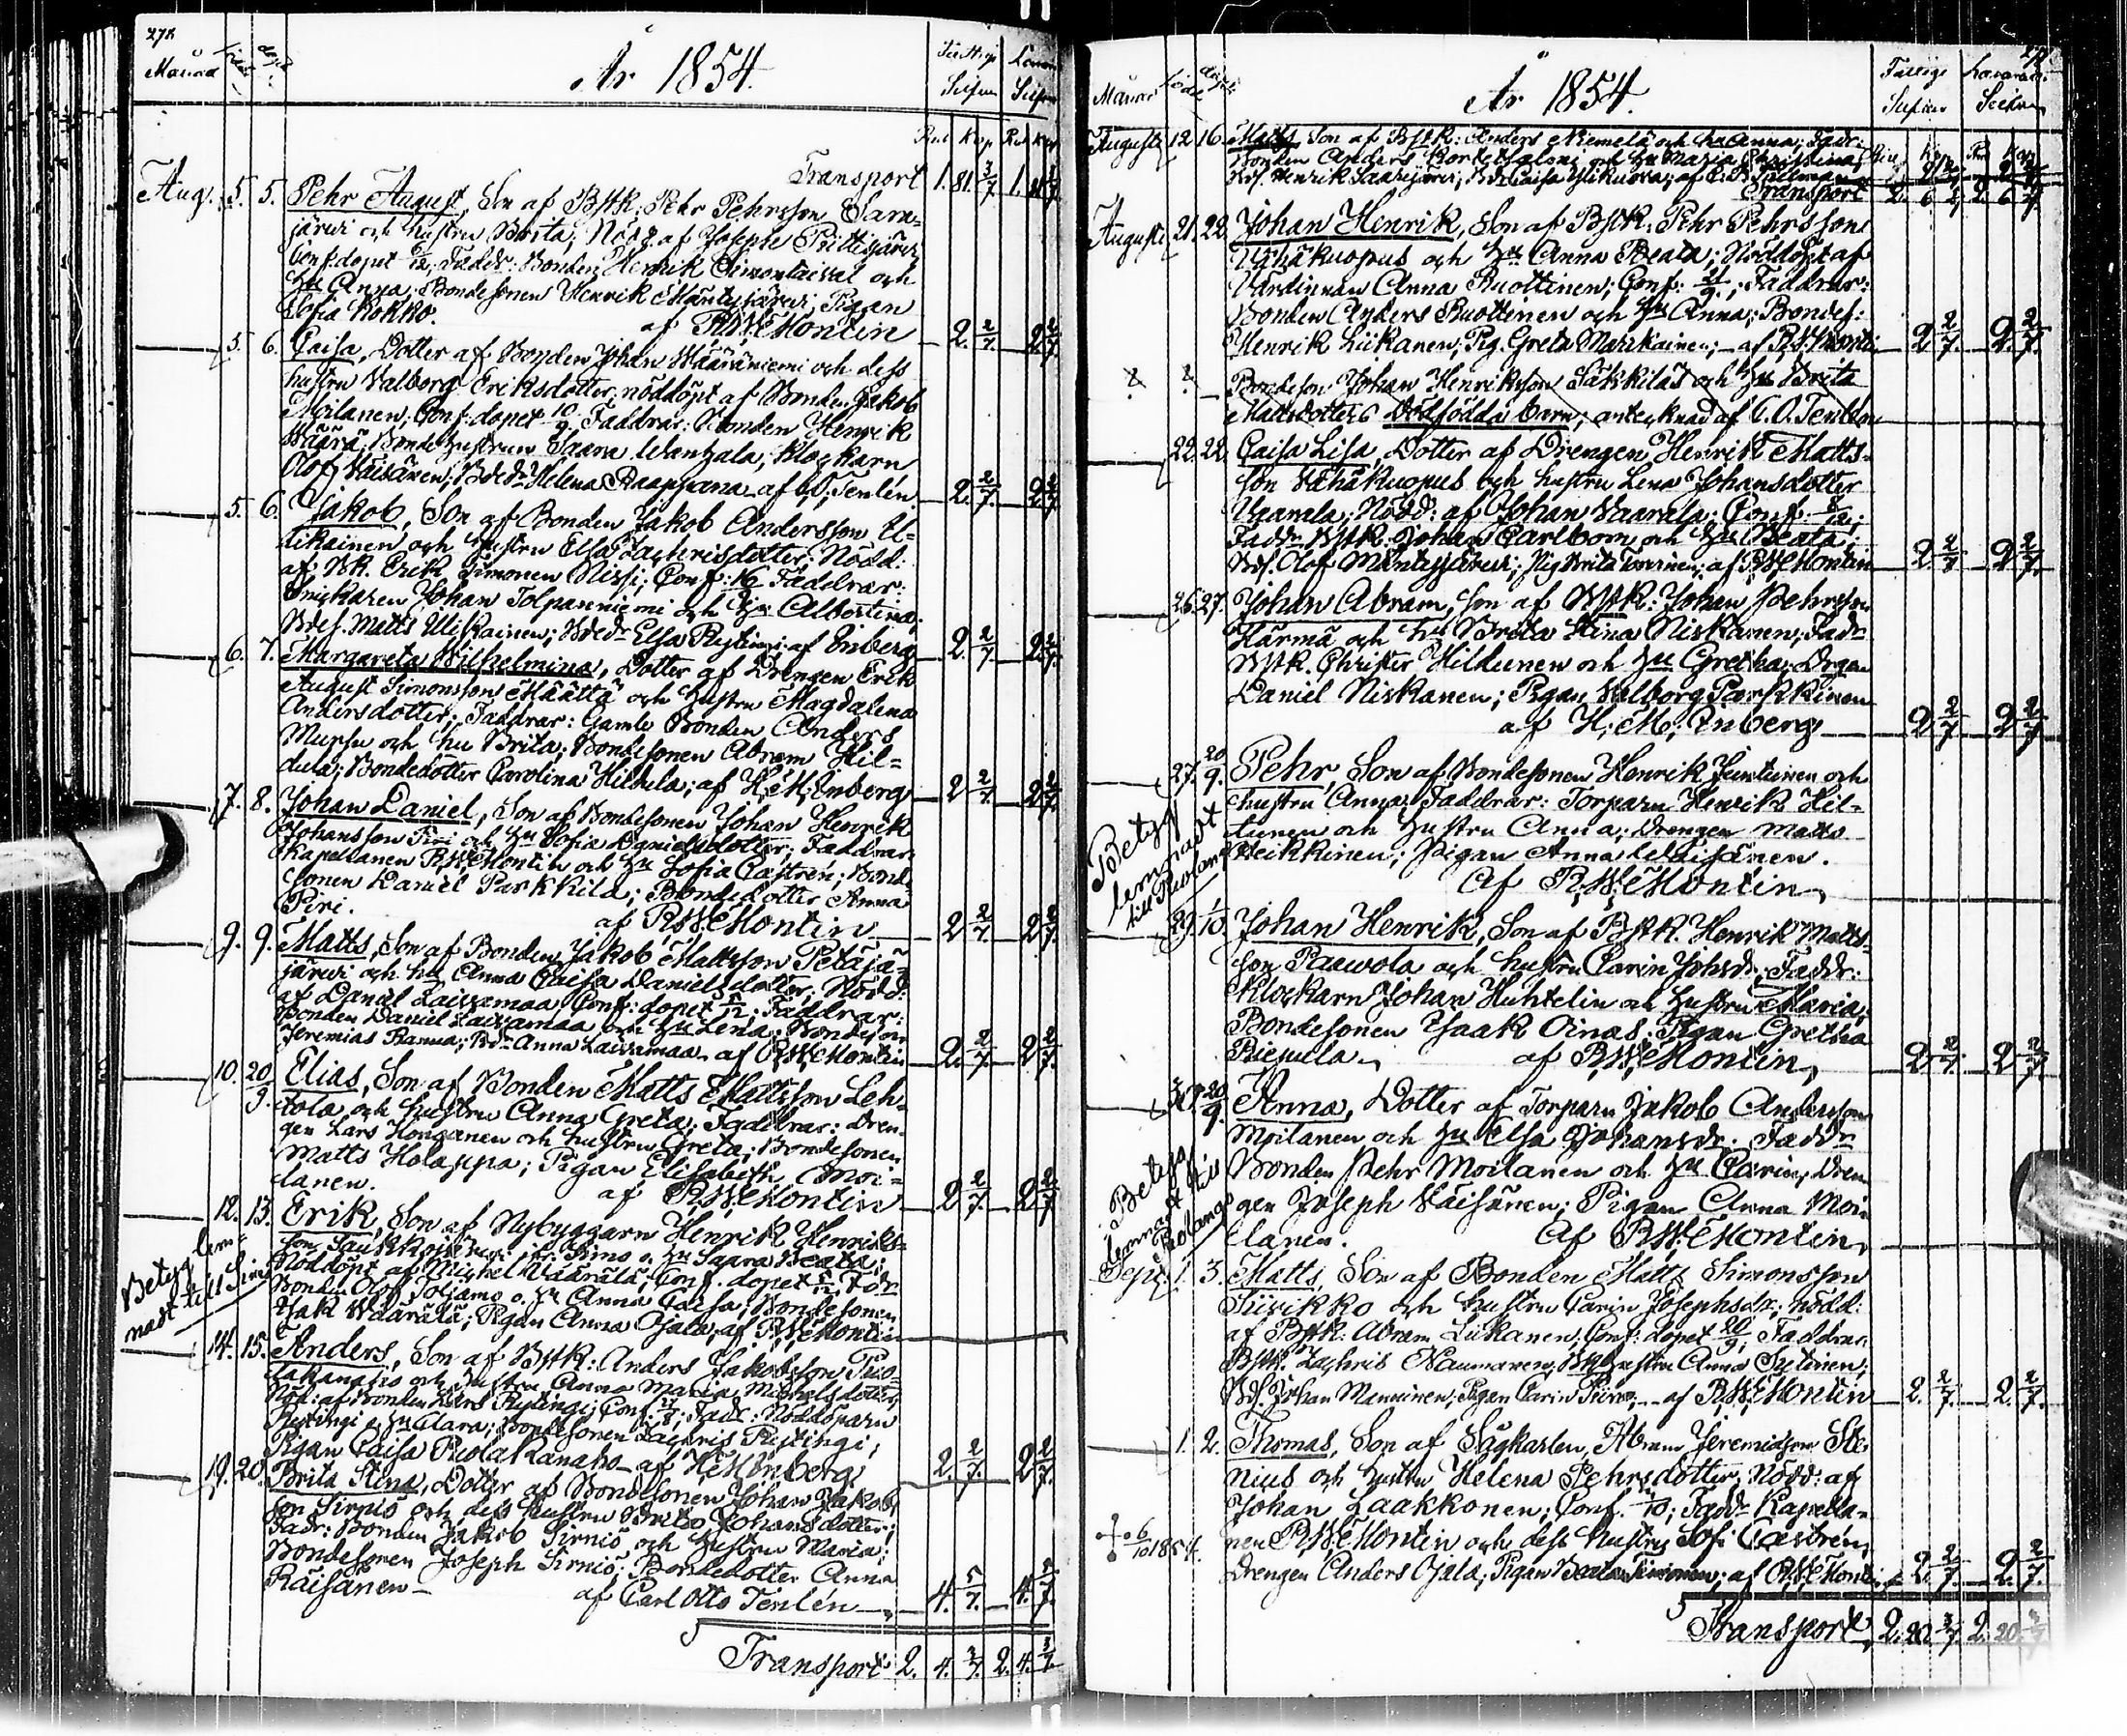 278
Månad födde döpte
År 1854.
Silfver Silfver
Rub Kop Rub Kop
Transport 1. 81 3/7 1. 81 3/7
Aug. 5. 5. Pehr August, Son af Bstk: Pehr Pehrsson Särki-
järwi och hustru Brita; Nödd. af Joseph
Conf. dopet; Faddr: Bonden Henrik Simontaival och
Hu Anna; Bondesonen Henrik Mäntyjärwi; Pigan
Sofia Kokko. af R.W. Montin 2. 2/7. 2 2/7.
5. 6. Caisa, Dotter af Bonden Johan Määräniemi och dess
hustru Valborg Eriksdotter, nöddöpt af Bonden Jakob
Moilanen; Conf. dopet 10/9 Faddrar: Bonden Henrik
Bondehustrun Saara Wanhala; Klockarn
Olof Väisänen; Helena Raappana af C.O. Tenlén 2. 2/7. 2 2/7.
5. 6. Jakob, Son af Bonden Jakob Andersson
och hustru Elsa Zachrisdotter; Nödd:
af Erik Simonen Nissi; Conf: Faddrar:
Snickaren Johan Tolpanniemi och Hu Albertina;
Bdes. Matts Elsa af Enberg 2. 2/7. 2 2/7.
6. 7. Margareta Wilhelmina, Dotter af Drengen Erik
August Simonsson Määttä och hustru Magdalena
Andersdotter; Faddrar: Gamle Bonden Anders
Mursu och hu Brita; Bondesonen Abram Hil-
dula; Bondedotter Carolina Hildula; af H.M. Enberg 2 2/7. 2 2/7.
7. 8. Johan Daniel, Son af Bondesonen Johan Henrik
Johansson Piri och Hu Sofia Danielsdotter; Faddrar:
Kapellanen R.W. Montin och Hu Sofia Castrén; Bonde-
sonen Daniel Parkkila; Bondedotter Anna
Piri. af R.W. Montin 2 2/7. 2 2/7.
9. 9. Matts, Son af Bonden Jakob Mattsson Petäjä-
järwi och hu Anna Caisa Danielsdotter; Nödd:
af Daniel Laiwamaa; Conf: dopet; Faddrar:
Bonden Daniel Laiwamaa och Hu Lena; Bondeson
Jeremias Ranua; Anna Laiwamaa af R.W. Montin 2. 2/7. 2 2/7.
10. 20/9. Elias, Son af Bonden Matts Mattsson Leh-
tola och hustru Anna Greta; Faddrar: Dren-
gen Lars Honganen och hustru Greta; Bondesonen
Matts Holappa; Pigan Elisabeth Moi-
lanen. af R.W. Montin 2 2/7. 2 2/7.
12. 13. Erik, Son af Nybyggarn Henrik Henriks-
son Saukkojärwi ifrån Simo o. Hu Saara Beata;
Nöddöpt af Michel Väärälä; Conf. dopet; Fdr
Bonden Olof o. Hu Anna Caisa; Bondesonen
Isak Väärälä; Pigan Anna Ojala, af R.W. Montin
Betyg lem-
nadt till Simo
14. 15. Anders, Son af Bstk: Anders Jakobsson Puo-
lakanaho och hustru Anna Maria Michelsdotter;
Nöd: af Bonden Lars Rytingi; Conf.; Fadr: Nöddöparn
Rytingi o. Hu Clara; Bondesonen Zachris Rytingi;
Pigan Caisa Puolakanaho af H.M. Enberg 2. 2/7. 2 2/7.
19. 20. Brita Stina, Dotter af Bondesonen Johan Jakobs-
son Sirniö och dess hustru Brita Johansdotter;
Fadr: Bonden Jakob Sirniö och hustru Maria;
Bondesonen Joseph Sirniö; Bondedotter Anna
Räisänen af Carl Otto Tenlén 4. 5/7. 4. 5/7.
Transport 2. 4. 3/7. 2. 4. 3/7.
Månad födde döpte
År 1854.
Fattige
Silfver Silfver
Augusti 12 16. Matts, Son af Bstk: Anders Niemelä och hu Anna; Fadr:
Bonden Anders och Hu Maria Christina;
Bds. Henrik Saarijärwi; Caisa
Transport 2. 6. 2. 6.
Augusti 21. 22. Johan Henrik, Son af Bstk: Pehr Pehrsson
Vähäkuopus och Hu Anna Beata; Nöddöpt af
Värdinnan Anna Ruottinen; Conf:; Faddrar:
Bonden Anders Ruottinen och Hu Anna; Bondes:
Henrik Liikanen; Pig. Greta Marikainen; af R.W. Montin 2 2/7. 2. 2/7.
Bondeson Johan Henriksson Säkkilas och Hu Brita
Mattsdotters dödfödda barn; antecknad af C.O. Tenlén
22. 22. Caisa Lisa, Dotter af Drengen Henrik Matts-
son Vähäkuopus och hustru Lena Johansdotter
Vaarala; Nödd: af Johan Vaarala; Conf.;
Faddr. Bstk: Johan Carlbom och Hu Beata;
Bds. Olof Mäntyjärwi; Pig Brita; af R.W. Montin 2 2/7 2 2/7.
26. 27. Johan Abram, Son af Bstk: Johan Pehrsson
Härmä och hu Brita Stina Niskanen; Fadr
Bstk. Christer Hildunen och Hu Gretha; Drgen
Daniel Niskanen; Pigan Valborg Parkkinen
af H.M. Enberg 2 2/7 2 2/7
27. 20/9. Pehr, Son af Bondesonen Henrik Juntunen och
hustru Anna; Faddrar: Torparn Henrik Hil-
tunen och hustru Anna; Drengen Matts
Heikkinen; Pigan Anna Väisänen.
Af R.W. Montin
Betyg
lemnadt
till Puolango
29. 1/10. Johan Henrik, Son af Bstk. Henrik Matts-
son Paawola och hustru Carin Johsdr; Faddr:
Klockarn Johan Huhtelin och hustru Maria;
Bondesonen Isaak Oinas; Pigan Gretha
Riepula. af R.W. Montin 2 2/7. 2 2/7.
20/9. Anna, Dotter af Torparn Jakob Andersson
Moilanen och Hu Elsa Johansdr. Faddr
Bonden Pehr Moilanen och Hu Carin; Dren-
gen Joseph Väisänen; Pigan Anna Moi-
lanen. Af R.W. Montin
Betyg
lemnadt till
Puolango
Sept. 1. 3. Matts, Son af Bonden Matts Simonsson
Siirikko och hustru Carin Josephsdr; nödd:
af Bstk: Abram Liikanen; Conf: dopet; Faddrar
Bstk. Zachris Naumanen; hustru Anna Sutinen;
Bds. Johan Manninen; Pigan Carin; af R.W. Montin 2. 2/7. 2. 2/7.
1. 2. Thomas, Son af Sågkarlen Abram Jeremiasson Ste-
nius och hustru Helena Pehrsdotter; Nödd: af
Johan Laakkonen; Conf. 1/10; Fadr Kapella-
nen R.W. Montin och dess hustru Sofi Castrén,
Drengen Anders Ojala; Pigan Beata; af R.W. Montin 2. 2/7. 2. 2/7.
6/10 1854.
Transport 2. 20 3/7 2. 20 3/7